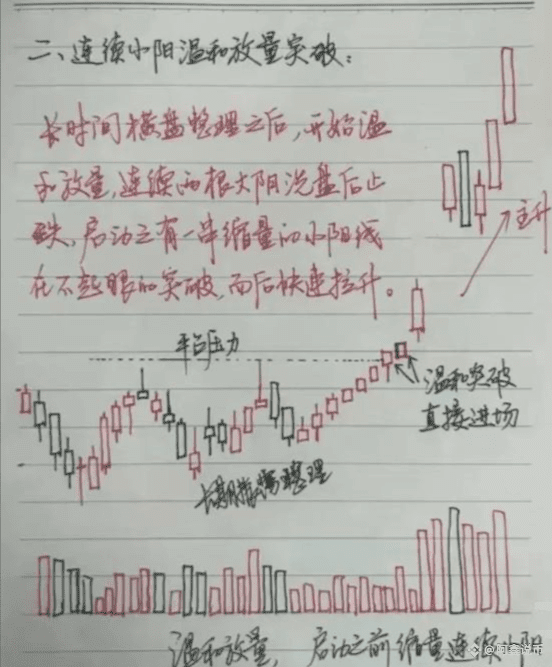 二、连续小阳温和放量突破:
长时间横盘整理之后,开始温
和放量,连续两根大阴洗盘后止
跌,启动之有一串缩量的小阳线
在不起眼的突破,而后快速拉升。
主升
平台压力
温和突破
直接进场
长期横盘整理
温和放量, 启动之前缩量连续小阳